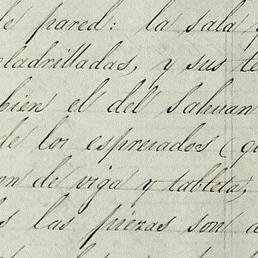 de pared: la sala y
nladrilladas, y sus te
bien el del Sahuan
de los espresados (q
on de viga y tableta,
s las piezas son d